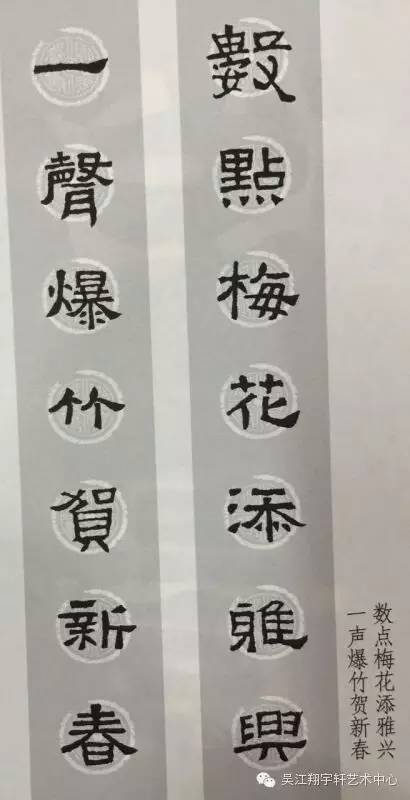 數點梅花添雅興
一聲爆竹賀新春
数点梅花添雅兴
一声爆竹贺新春
吴江翔宇轩艺术中心